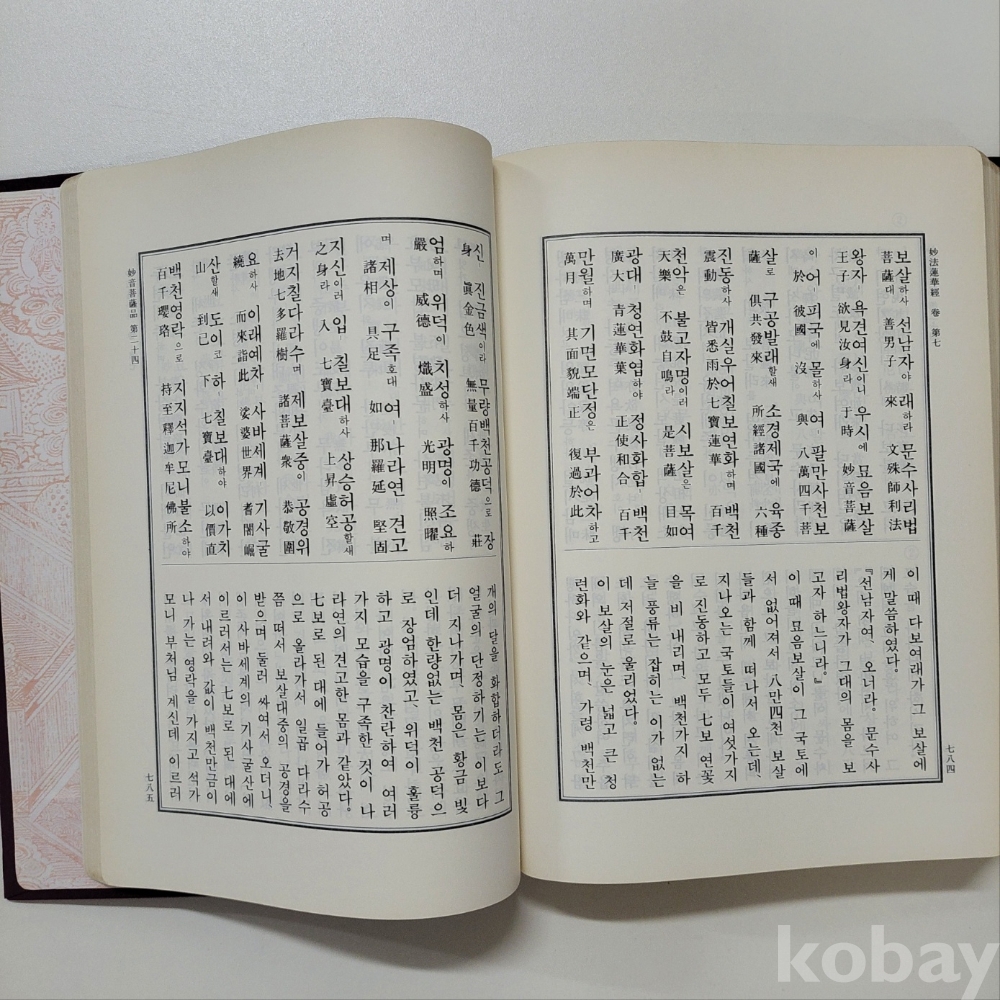 妙法蓮華經 卷 第七
보살하사 선남자야 래하라 문수사리법
菩薩大 善男子 來 文殊師利法
왕자ㅣ 욕견여신이니 우시에 묘음보살
王子 欲見汝身라 于時 妙音菩薩
이 어ㅣ 피국에 몰하사 여ㅣ 팔만사천보
於彼國 沒 與 八萬四千菩
살로 구공발래할새 소경제국에 육종
薩 俱共發來 所經諸國 六種
진동하사 개실우어칠보연화하며 백천
震動 皆悉雨於七寶蓮華 百千
천악은 불고자명이러 시보살은 목여
天樂 不鼓自鳴라 是菩薩 目如
광대ㅣ 청연화엽하야 정사화합ㅣ 백천
廣大 青蓮華葉 正使和合 百千
만월하며 기면모단정은 부과어차하고
萬月 其面貌端正 復過於此
이 때 다보여래가 그 보살에
게 말씀하였다.
『선남자여, 오너라. 문수사
리법왕자가 그대의 몸을 보
고자 하느니라.』
이 때 묘음보살이 그 국토에
서 없어져서 八만四천 보살
들과 함께 떠나서 오는데,
지나오는 국토들이 여섯가지
로 진동하고 모두 七보 연꽃
을 비 내리며, 백천가지 하
늘 풍류는 잡히는 이가 없는
데 저절로 울리었다.
이 보살의 눈은 넓고 큰 청
련화와 같으며, 가령 백천만
七八四
신ㅣ 진금색이라 무량백천공덕으로 장
身 眞金色 無量百千功德 莊
엄하며 위덕이 치성하사 광명이 조요하
嚴 威德 熾盛 光明 照曜
며 제상이 구족호대 여ㅣ 나라연ㅣ 견고
諸相 具足 如 那羅延 堅固
지신이러 입ㅣ 칠보대하사 상승허공할새
之身라 入 七寶臺 上昇虛空
거지칠다라수며 제보살중이 공경위
去地七多羅樹 諸菩薩衆 恭敬圍
요하사 이래예차ㅣ 사바세계ㅣ 기사굴
繞 而來詣此 娑婆世界 耆闍崛
산할새 도이코 하ㅣ 칠보대하야 이가치
山 到已 下 七寶臺 以價直
백천영락으로 지지석가모니불소하야
百千瓔珞 持至釋迦牟尼佛所
개의 달을 화합하더라도 그
얼굴의 단정하기는 이보다
더 지나가며, 몸은 황금 빛
인데 한량없는 백천 공덕으
로 장엄하였고, 위덕이 훌륭
하고 광명이 찬란하여 여러
가지 모습을 구족한 것이 나
라연의 견고한 몸과 같았다.
七보로 된 대에 들어가 허공
으로 올라가서 일곱 다라수
쯤 떠서 보살대중의 공경을
받으며 둘러 싸여서 오더니,
이 사바세계의 기사굴산에
이르러서는 七보로 된 대에
서 내려와 값이 백천만금이
나 가는 영락을 가지고 석가
모니 부처님 계신데 이르러
妙音菩薩品 第二十四
七八五
kobay